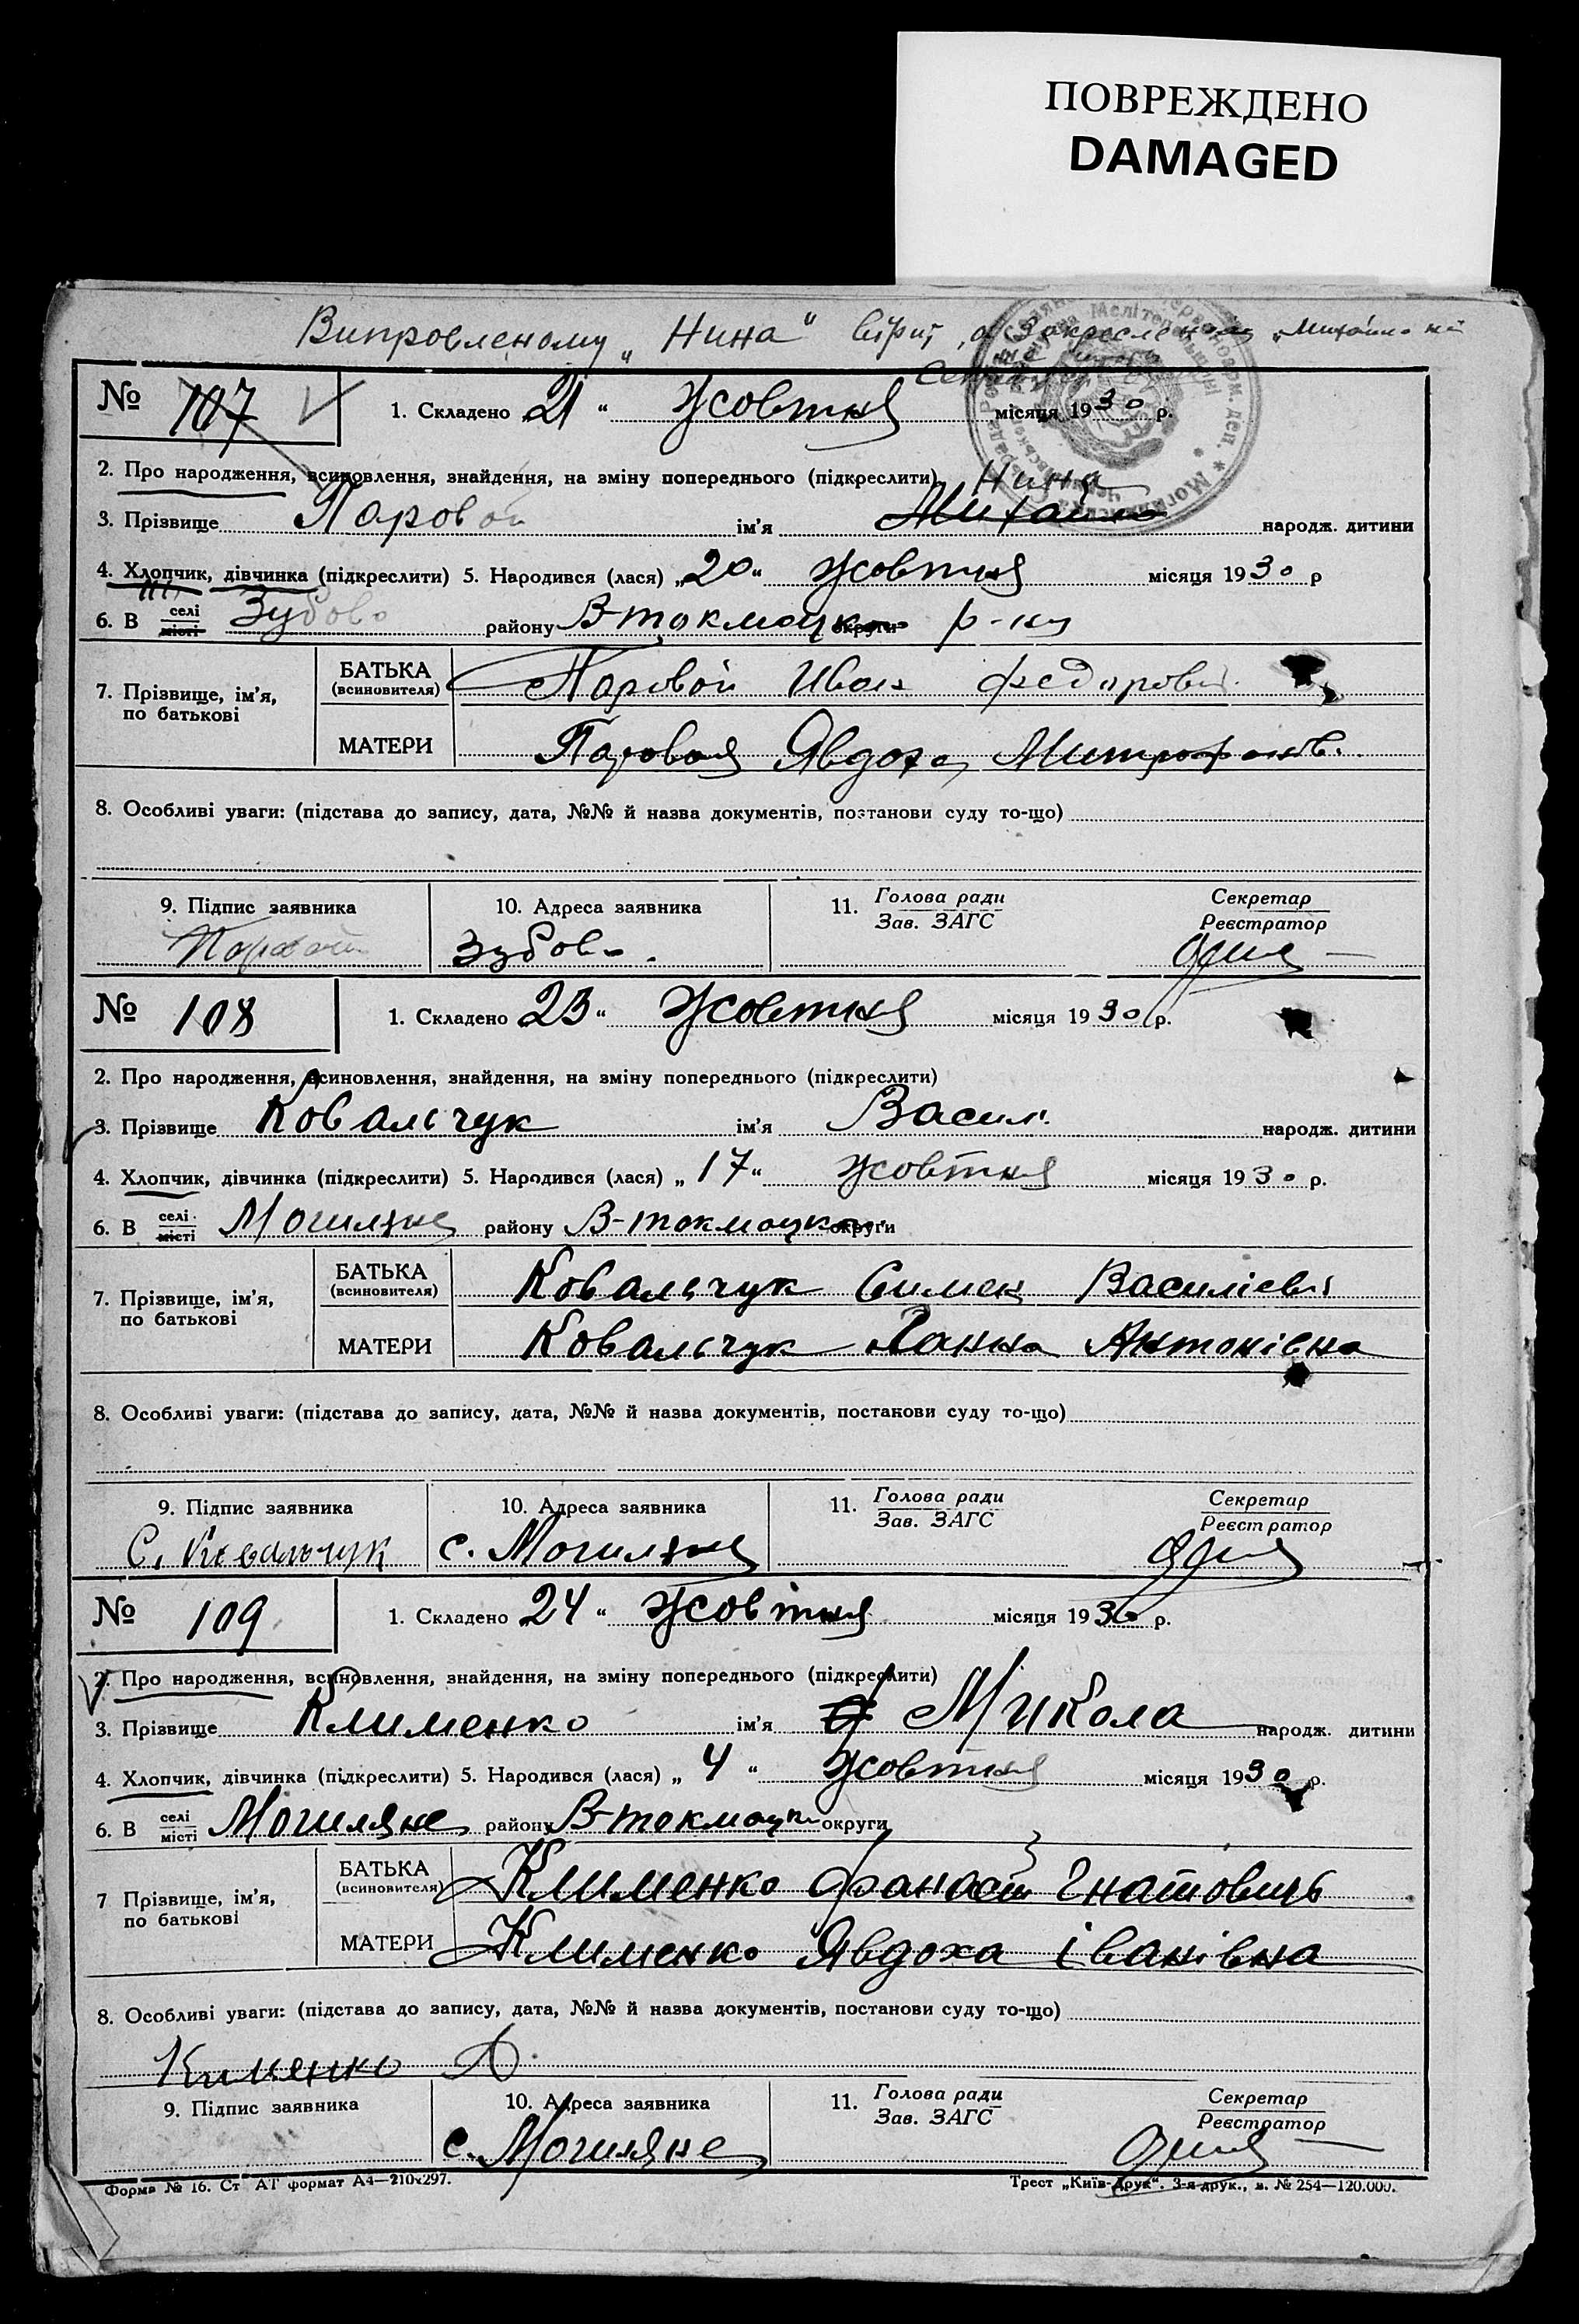 ПОВРЕЖДЕНО
DAMAGED
Випровленому „Нина“ вірит, а закреслен „Михайло не
№ 107
1. Складено „21“ Жовтня місяця 1930 р.
2. Про народження, всиновлення, знайдення, на зміну попереднього (підкреслити)
Нина
3. Прізвище Паровой ім'я Михайло народж. дитини
4. Хлопчик, дівчинка (підкреслити) 5. Народився (лася) „20“ жовтня місяця 1930 р
6. В селі місті Зубово району В-токмацьк округи р-ну
7. Прізвище, ім'я, по батькові
БАТЬКА (всиновителя) Паровой Иван Федорович
МАТЕРИ Паровая Явдоха Митрофанов.
8. Особливі уваги: (підстава до запису, дата, №№ й назва документів, постанови суду то-що)
9. Підпис заявника 10. Адреса заявника 11. Голова ради Зав. ЗАГС Секретар Реєстратор
Паровой Зубово.
№ 108
1. Складено „23“ Жовтня місяця 1930 р.
2. Про народження, всиновлення, знайдення, на зміну попереднього (підкреслити)
3. Прізвище Ковальчук ім'я Васил. народж. дитини
4. Хлопчик, дівчинка (підкреслити) 5. Народився (лася) „17“ жовтня місяця 1930 р.
6. В селі місті Могиляне району В-токмацьк округи
7. Прізвище, ім'я, по батькові
БАТЬКА (всиновителя) Ковальчук Симен Василіеви
МАТЕРИ Ковальчук Ганна Антонівна
8. Особливі уваги: (підстава до запису, дата, №№ й назва документів, постанови суду то-що)
9. Підпис заявника 10. Адреса заявника 11. Голова ради Зав. ЗАГС Секретар Реєстратор
С. Ковальчук с. Могиляне
№ 109
1. Складено „24“ Жовтня місяця 1930 р.
2. Про народження, всиновлення, знайдення, на зміну попереднього (підкреслити)
3. Прізвище Клименко ім'я Микола народж. дитини
4. Хлопчик, дівчинка (підкреслити) 5. Народився (лася) „4“ жовтня місяця 1930 р.
6. В селі місті Могиляне району В-токмацьк округи
7 Прізвище, ім'я, по батькові
БАТЬКА (всиновителя) Клименко Фанасій Гнатовичь
МАТЕРИ Клименко Явдоха Іванівна
8. Особливі уваги: (підстава до запису, дата, №№ й назва документів, постанови суду то-що)
Клименко А.
9. Підпис заявника 10. Адреса заявника 11. Голова ради Зав. ЗАГС Секретар Реєстратор
с. Могиляне
Форма № 16. Ст АТ формат А4—210х297. Трест „Київ-Друк“. 3-я друк., з. № 254—120.000.